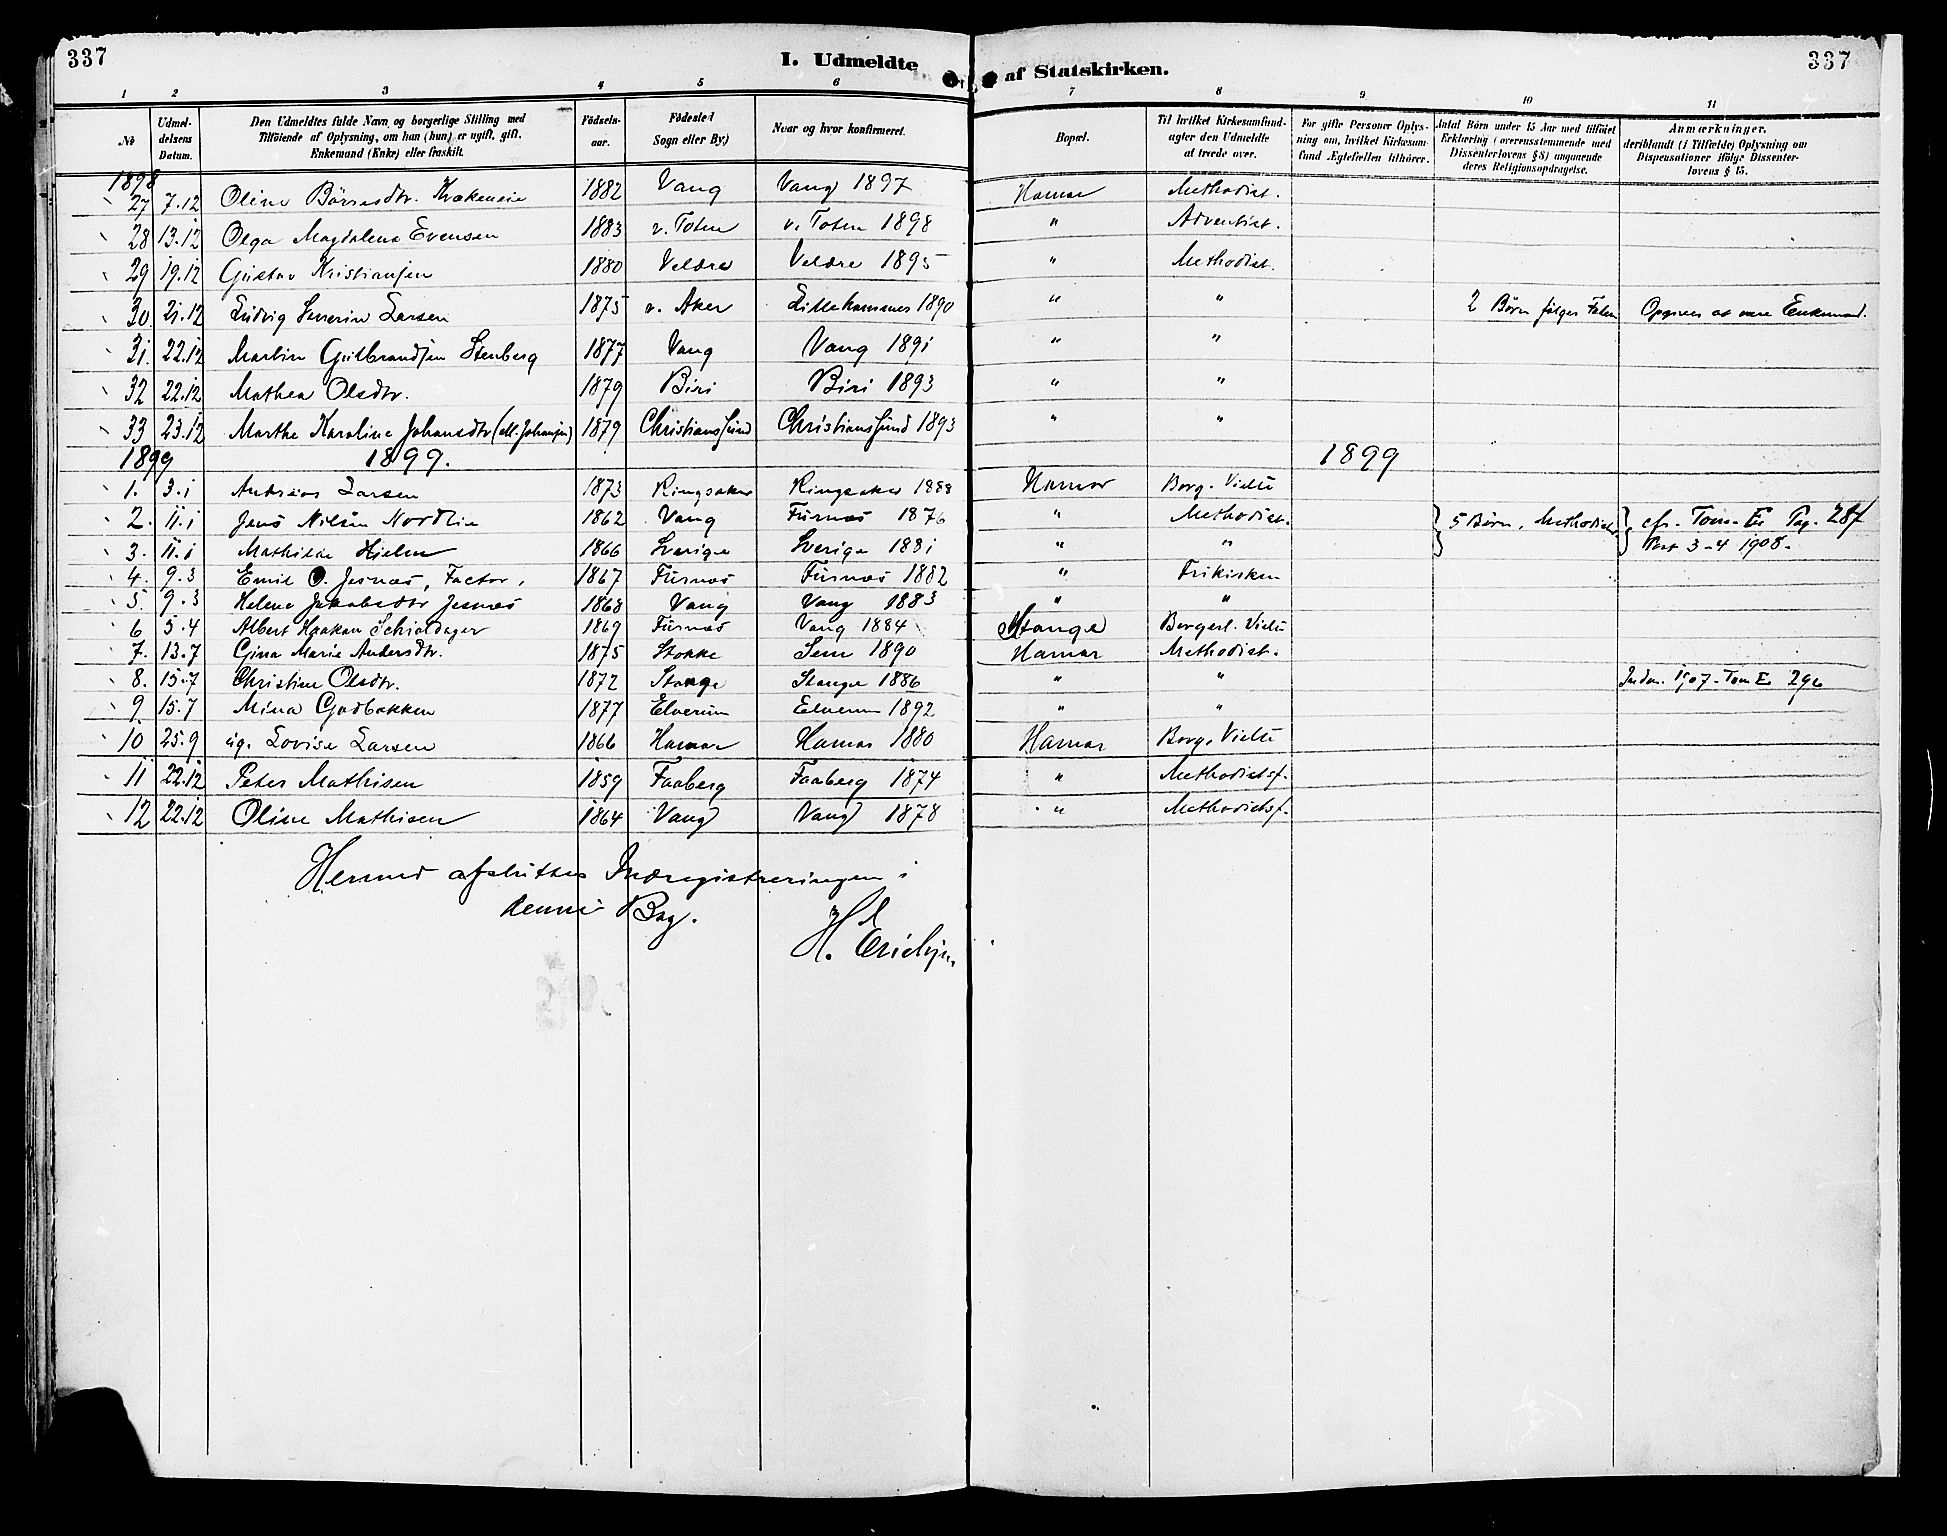 337 I. Udmeldte af Statskirken. 337
1 2 3 4 5 6 7 8 9 10 11
No
Udmeldelsens Datum.
Den Udmeldtes fulde Navn og borgerlige Stilling med
Tilføiende af Oplysning, om han (hun) er ugift, gift.
Enkemand (Enke) eller fraskilt.
Fødselsaar.
Fødested
Sogn eller By.)
Naar og hvor konfirmeret.
Bopæl.
Til hvilket Kirkesamfund
agter den Udmeldte
at træde over.
For gifte Personer Oplysning om, hvilket Kirkesamfund Ægtefællen tilhører.
Antal Børn under 15 Aar med tilføiet
Erklæring (overensstemmende med
Dissenterlovens § 8) angaaende
deres Religionsopdragelse.
Anmærkninger.
deriblandt (i Tilfælde) Oplysning om
Dispensationer ifølge Dissenterlovens § 15.
1898
27 7.12 Oline Børresdtr. 1882 Vang Vang 1897 Hamar Methodist.
28 13.12 Olga Magdalena Evensen 1883 v. Toten v. Toten 1898 " Adventist.
29 19.12 Gustav Kristiansen 1880 Veldre Veldre 1895 " Methodist.
30 21.12 Ludvig Severin Larsen 1875 v. Aker Lillehammer 1890 " " 2 Børn følger Opgives at være Enkemand.
31 22.12 Martin Gulbrandsen Stenberg 1877 Vang Vang 1891 " "
32 22.12 Mathea Olsdtr. 1879 Biri Biri 1893 " "
33 23.12 Marthe Karoline Johansdtr (ell. Johansen) 1879 Christianssund Christianssund 1893 " "
1899 1899. 1899
1. 3.1 Andreas Larsen 1873 Ringsaker Ringsaker 1888 Hamar Borg. Vielse
2. 11.1 Jens Nilsen Nordlie 1862 Vang Furnes 1876 " Methodist. 5 Børn, Methodister cfr. Tom. E Pag. 287
3. 11.1 Mathilde Hjelm 1866 Sverige Sverige 1881 " " Post 3-4 1908.
4. 9.3 Emil O. Jesnes, Factor, 1867 Furnes Furnes 1882 " Frikirken
5. 9.3 Helene Jakobsdtr Jesnes 1868 Vang Vang 1883 " "
6 5.4 Albert Haakon Schioldager 1869 Furnes Vang 1884 Stange Borgerl. Vielse
7. 13.7 Gina Marie Andersdtr. 1875 Stokke Sem 1890 Hamar Methodist.
8. 15.7 Christine Olsdtr. 1872 Stange Stange 1886 " " 1907. Tom E 296
9. 15.7 Mina Godbakken 1877 Elverum Elverum 1892 " "
10 25.9 ug. Lovise Larsen 1866 Hamar Hamar 1880 Hamar Borg. Vielse
11 22.12 Peter Mathisen 1859 Faaberg Faaberg 1874 " Methodistsf.
12 22.12 Oline Mathisen 1864 Vang Vang 1878 " Methodistsf.
Hermed afsluttes Indregistreringen i
denne Bog.
H.